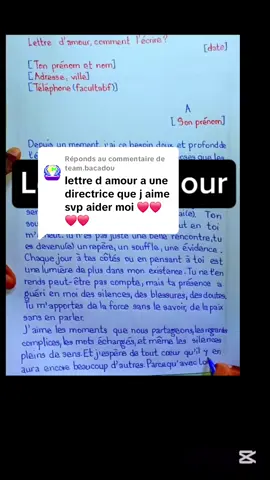 Lettre d'amour, comment l'écrire?
[date]
[Ton prénom et nom]
[Adresse, ville]
[Téléphone (facultatif)]
A
[Son prénom]
Depuis un moment, j'ai ce besoin doux et profonde
Réponds au commentaire de
team.bacadou
lettre d amour a une
directrice que j aime
svp aider moi ❤️❤️
❤️❤️
L our
Ton
en toi
m'
pas juste une belle rencontre, tu
es devenu(e) un repère, un souffle, une évidence.
Chaque jour à tes côtés ou en pensant à toi est
une lumière de plus dans mon existence. Tu ne t'en
rends peut-être pas compte, mais ta présence a
guéri en moi des silences, des blessures, des doutes.
Tu m'apportes de la force sans le savoir, de la paix
sans en parler.
J'aime les moments que nous partageons, les regards
complices, les mots échangés, et même les silences
pleins de sens. Et j'espère de tout cœur qu'il y en
aura encore beaucoup d'autres. Parce qu'avec toi
CapCut